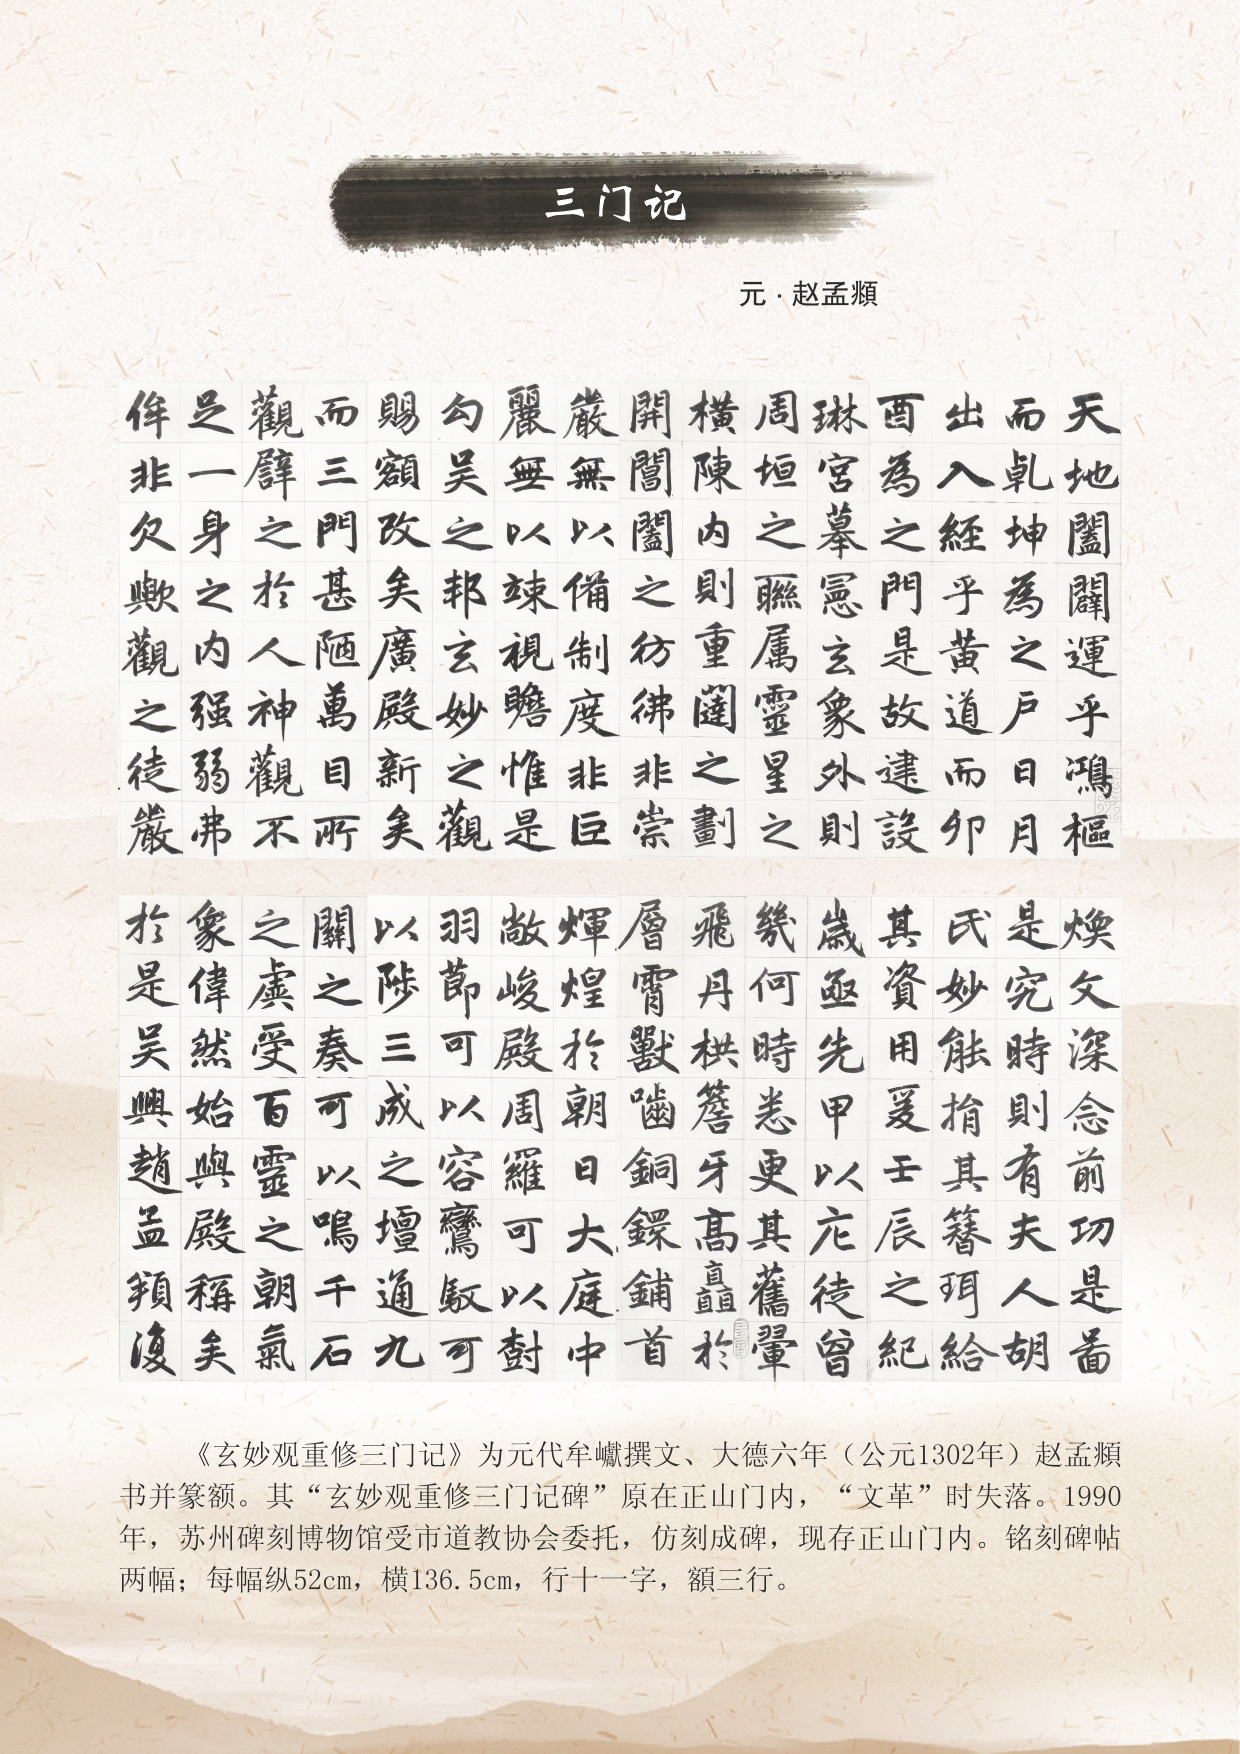 三门记
元·赵孟頫
天地闔闢運乎鴻樞
而乹坤為之戶日月
出入經乎黃道而卯
酉為之門是故建設
琳宮摹憲玄象外則
周垣之聯属靈星之
橫陳内則重闥之劃
開閶闔之彷彿非崇
嚴無以備制度非巨
麗無以竦視瞻惟是
勾吴之邦玄妙之觀
賜額改矣廣殿新矣
而三門甚陋萬目所
觀譬之於人神觀不
足一身之内强弱弗
侔非欠歟觀之徒嚴
煥文深念前功是啚
是究時則有夫人胡
氏妙能捐其簪珥給
其資用爰壬辰之紀
歲亟先甲以庀徒曾
幾何時悉更其舊翬
飛丹栱簷牙高矗於
層霄獸嚙銅鐶鋪首
輝煌於朝日大庭中
敞峻殿周羅可以樹
羽莭可以容鸞馭可
以陟三成之壇通九
關之奏可以鳴千石
之虡受百靈之朝氣
象偉然始與殿稱矣
於是吴興趙孟頫復
《玄妙观重修三门记》为元代牟巘撰文、大德六年（公元1302年）赵孟頫
书并篆额。其“玄妙观重修三门记碑”原在正山门内，“文革”时失落。1990
年，苏州碑刻博物馆受市道教协会委托，仿刻成碑，现存正山门内。铭刻碑帖
两幅；每幅纵52cm，横136.5cm，行十一字，額三行。